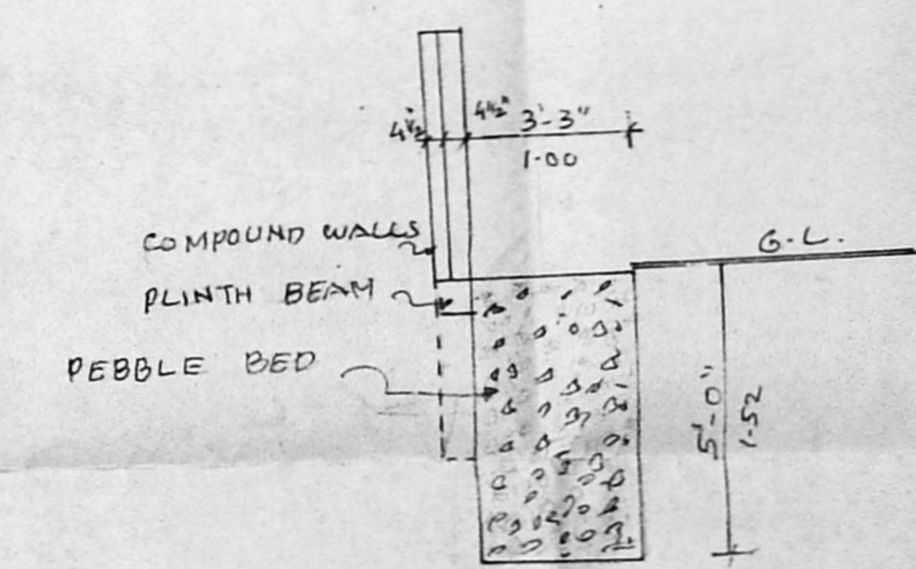 4½"
4½"
3'-3"
1.00
COMPOUND WALLS
G.L.
PLINTH BEAM
PEBBLE BED
5'-0"
1.52